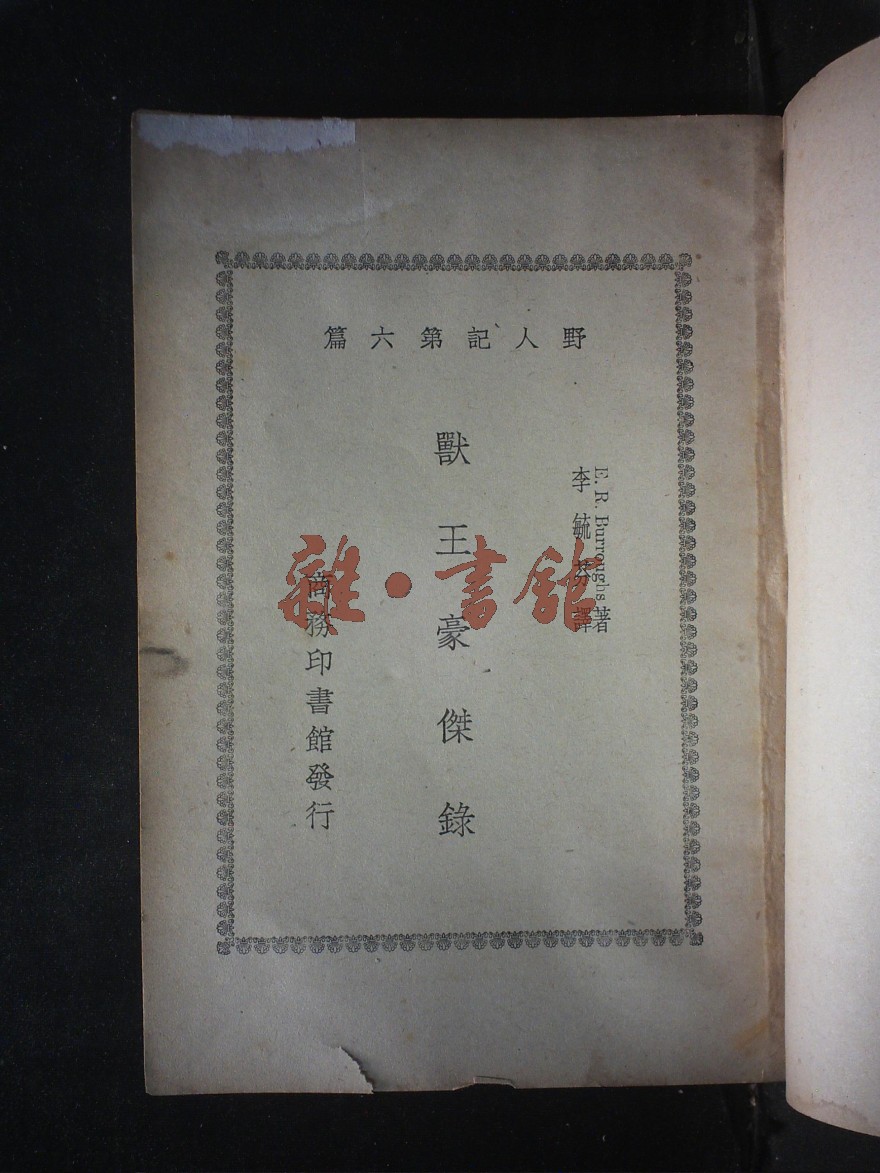 野人記第六篇
E. R. Burroughs 著
李毓芬譯
獸王豪傑錄
商務印書館發行
雜·書館